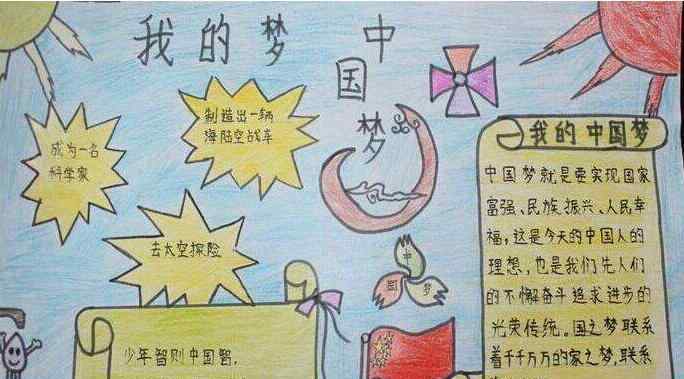 我的梦
中
国
梦
制造出一辆
海陆空战车
成为一名
科学家
去太空探险
中
国
梦
少年智则中国智,
我的中国梦
中国梦就是要实现国家
富强、民族振兴、人民幸
福,这是今天的中国人的
理想,也是我们先人们
的不懈奋斗追求进步的
光荣传统。国之梦联系
着千千万万的家之梦,联系